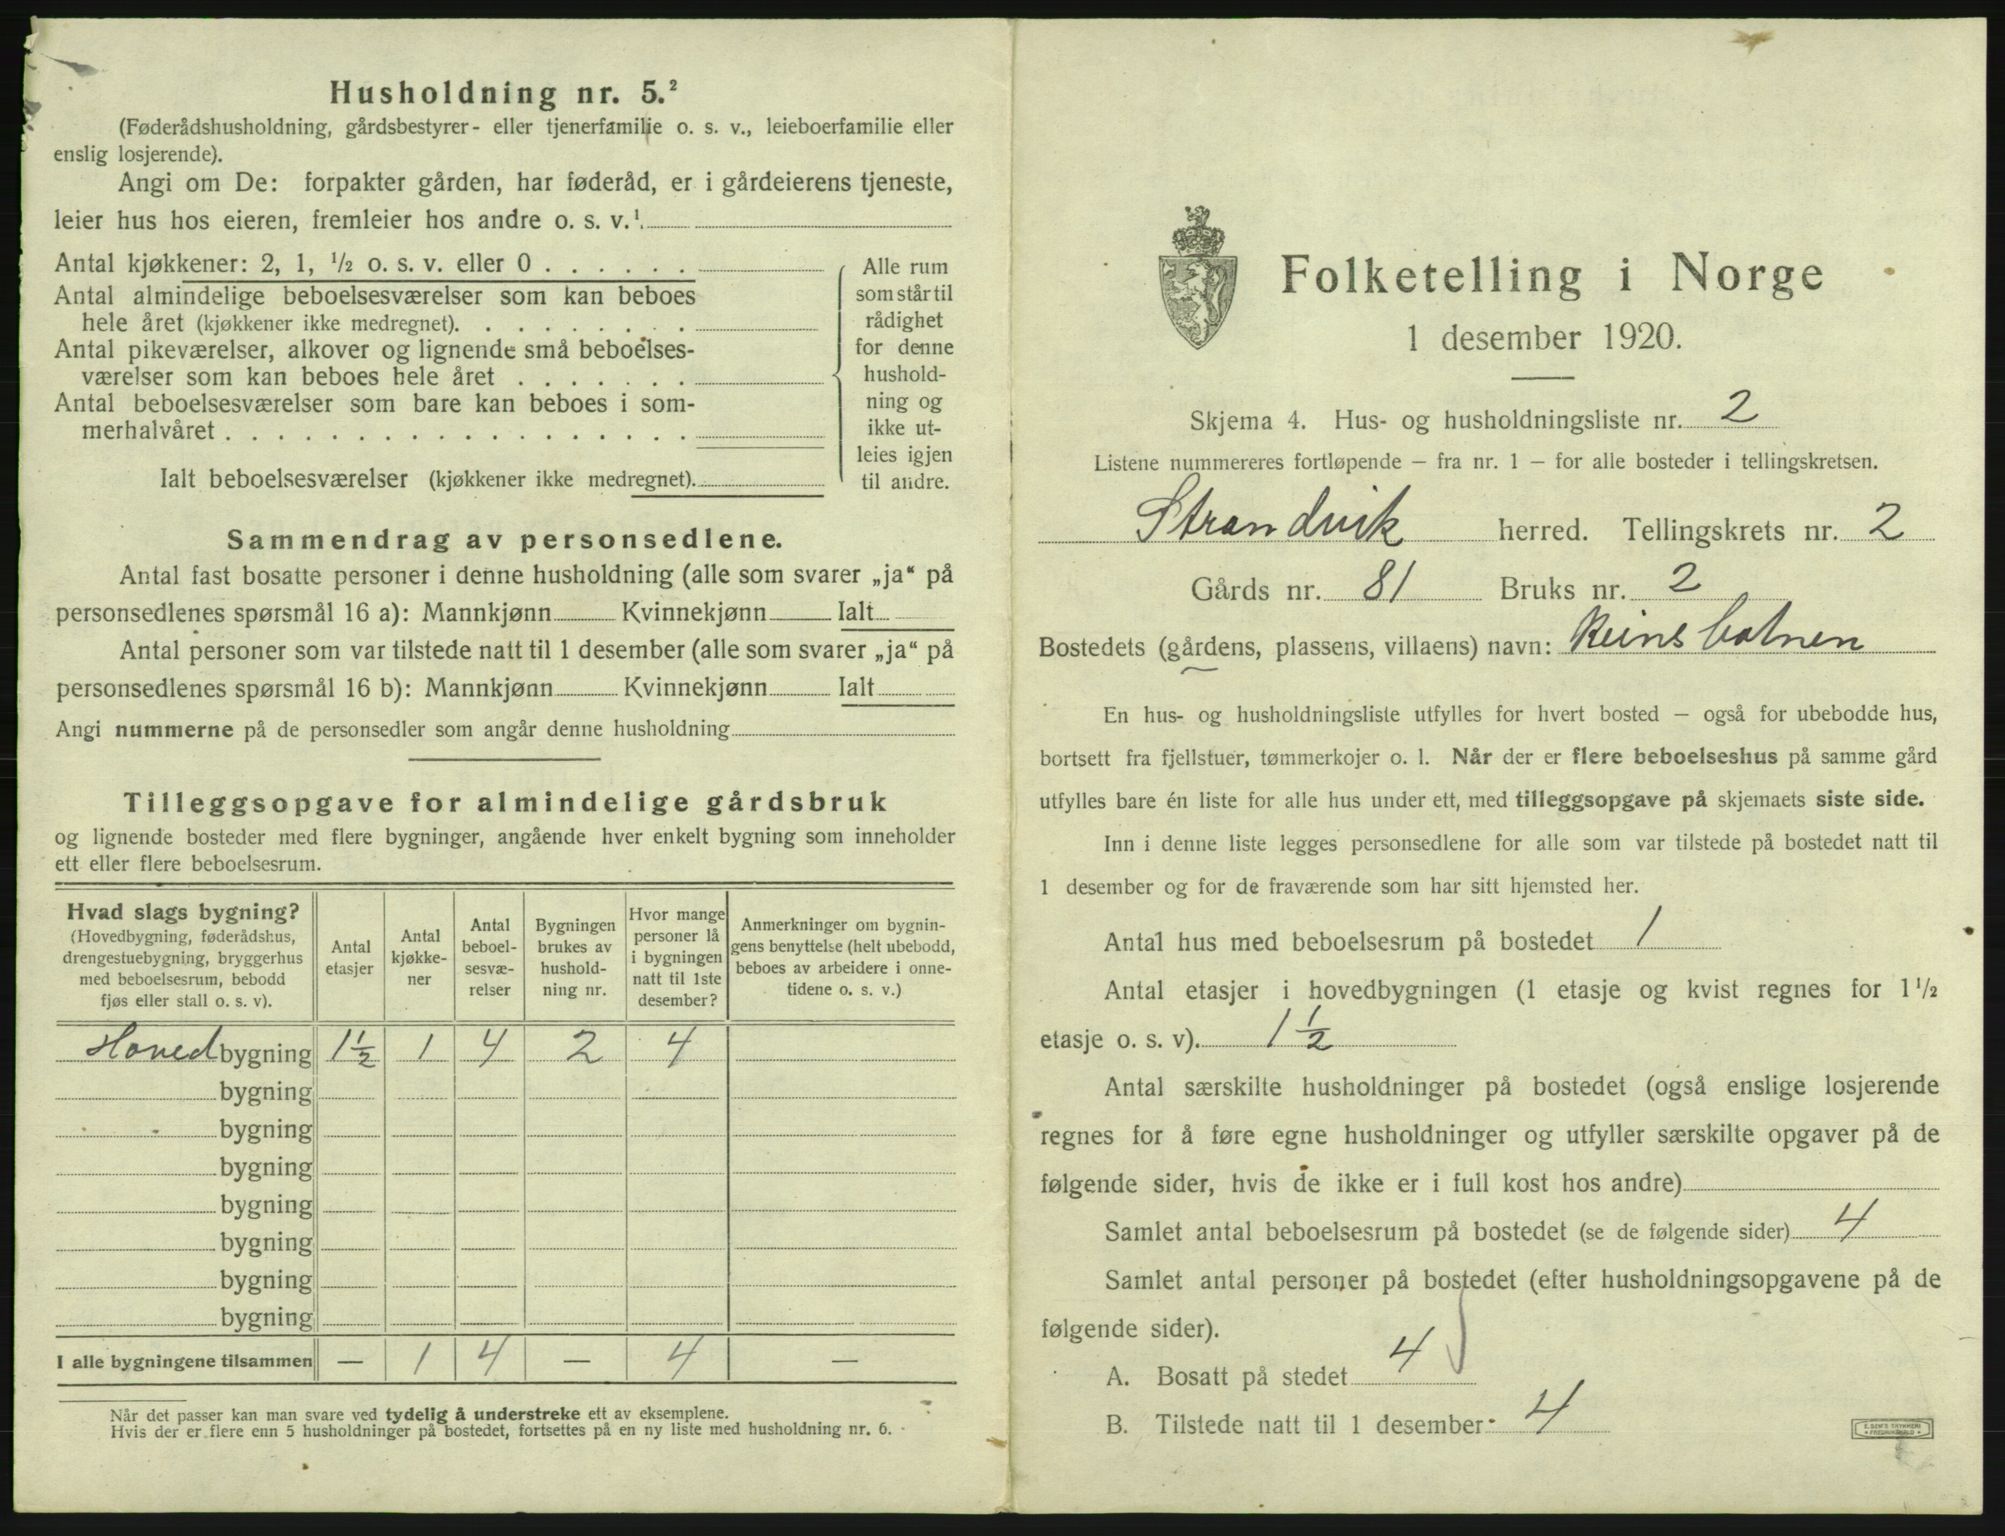 Husholdning nr. 5.²
(Føderådshusholdning, gårdsbestyrer- eller tjenerfamilie o. s. v., leieboerfamilie eller
enslig losjerende).
Angi om De: forpakter gården, har føderåd, er i gårdeierens tjeneste,
leier hus hos eieren, fremleier hos andre o. s. v.¹
Antal kjøkkener: 2, 1, ½ o. s. v. eller 0
Antal almindelige beboelsesværelser som kan beboes
hele året (kjøkkener ikke medregnet).
Antal pikeværelser, alkover og lignende små beboelses-
værelser som kan beboes hele året
Antal beboelsesværelser som bare kan beboes i som-
merhalvåret
Alle rum
som står til
rådighet
for denne
hushold-
ning og
ikke ut-
leies igjen
til andre.
Ialt beboelsesværelser (kjøkkener ikke medregnet).
Sammendrag av personsedlene.
Antal fast bosatte personer i denne husholdning (alle som svarer „ja“ på
personsedlenes spørsmål 16 a): Mannkjønn Kvinnekjønn Ialt
Antal personer som var tilstede natt til 1 desember (alle som svarer „ja“ på
personsedlenes spørsmål 16 b): Mannkjønn Kvinnekjønn Ialt
Angi nummerne på de personsedler som angår denne husholdning
Tilleggsopgave for almindelige gårdsbruk
og lignende bosteder med flere bygninger, angående hver enkelt bygning som inneholder
ett eller flere beboelsesrum.
Hvad slags bygning?
(Hovedbygning, føderådshus,
drengestuebygning, bryggerhus
med beboelsesrum, bebodd
fjøs eller stall o. s. v).
Antal
etasjer
Antal
kjøkke-
ner
Antal
beboel-
sesvæ-
relser
Bygningen
brukes av
hushold-
ning nr.
Hvor mange
personer lå
i bygningen
natt til 1ste
desember?
Anmerkninger om bygnin-
gens benyttelse (helt ubebodd,
beboes av arbeidere i onne-
tidene o. s. v.)
Hoved bygning 1½ 1 4 2 4
bygning
bygning
bygning
bygning
bygning
bygning
bygning
I alle bygningene tilsammen — 1 4 — 4 —
Når det passer kan man svare ved tydelig å understreke ett av eksemplene.
Hvis der er flere enn 5 husholdninger på bostedet, fortsettes på en ny liste med husholdning nr. 6.
Folketelling i Norge
1 desember 1920.
Skjema 4. Hus- og husholdningsliste nr. 2
Listene nummereres fortløpende — fra nr. 1 — for alle bosteder i tellingskretsen.
Strandvik herred. Tellingskrets nr. 2
Gårds nr. 81 Bruks nr. 2
Bostedets (gårdens, plassens, villaens) navn: Reinsbotnen
En hus- og husholdningsliste utfylles for hvert bosted — også for ubebodde hus,
bortsett fra fjellstuer, tømmerkojer o. l. Når der er flere beboelseshus på samme gård
utfylles bare én liste for alle hus under ett, med tilleggsopgave på skjemaets siste side.
Inn i denne liste legges personsedlene for alle som var tilstede på bostedet natt til
1 desember og for de fraværende som har sitt hjemsted her.
Antal hus med beboelsesrum på bostedet 1
Antal etasjer i hovedbygningen (1 etasje og kvist regnes for 1½
etasje o. s. v). 1½
Antal særskilte husholdninger på bostedet (også enslige losjerende
regnes for å føre egne husholdninger og utfyller særskilte opgaver på de
følgende sider, hvis de ikke er i full kost hos andre)
Samlet antal beboelsesrum på bostedet (se de følgende sider) 4
Samlet antal personer på bostedet (efter husholdningsopgavene på de
følgende sider).
A. Bosatt på stedet 4
B. Tilstede natt til 1 desember 4